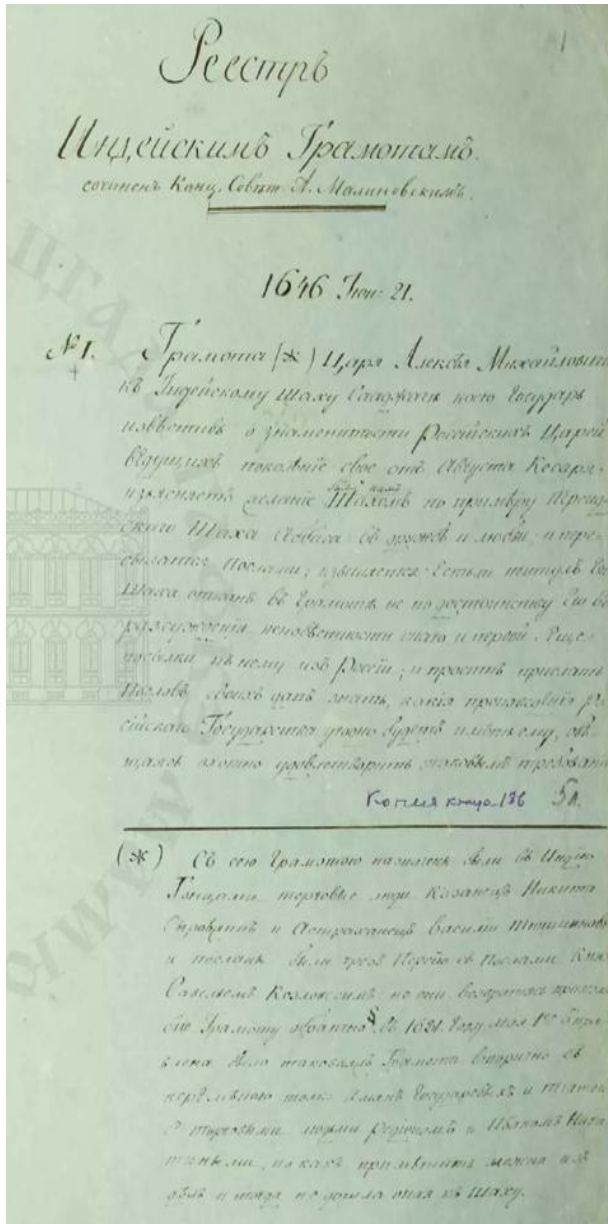 1
Реестръ
Индейскимъ Грамотамъ.
сочиненъ Канц. Совѣт. А. Малиновскимъ.
1646 Іюн: 21.
№ 1. Грамота (*) Царя Алексѣя Михайловича
къ Индейскому Шаху коею Государь
извѣстивъ о знаменитости Россійскихъ Царей
ведущихъ поколѣніе свое отъ Августа Кесаря
изъясняетъ желаніе съ Шахомъ по примѣру Персид
скаго Шаха Аббаса въ дружбѣ и любви и пере
сылаться Послами; извиняется Естьли титулъ Его
Шаха описанъ въ Грамотѣ не по достоинству Его въ
разсужденіи неизвѣстности онаго и первой Еще
посылки къ нему изъ Россіи; и проситъ приславъ
Пословъ своихъ дать знать, какія произведенія Рос
сійскаго Государства угодно будетъ имѣть ему, обѣ
щаясь охотно удовлетворить таковымъ требовані
Копия книга 186 5 л.
(*) Съ сею Грамотою назначены были въ Индію
Гонцами торговые люди Казанецъ Никита
Сыроѣжинъ и Астраханецъ Василій
и посланы были чрезъ Персію съ Послами Княз
Козловскимъ но они возвратясь
сію Грамоту обратно Въ 1651. Году Мая 1го Отпра
влена была таковаяжъ Грамота вторично съ
перемѣною только Имянъ Государевыхъ и титловъ
съ торговыми людми Родіономъ и Иваномъ Ники
тиными, но какъ примѣтить можно изъ
дѣлъ и тогда не дошла оная къ Шаху.